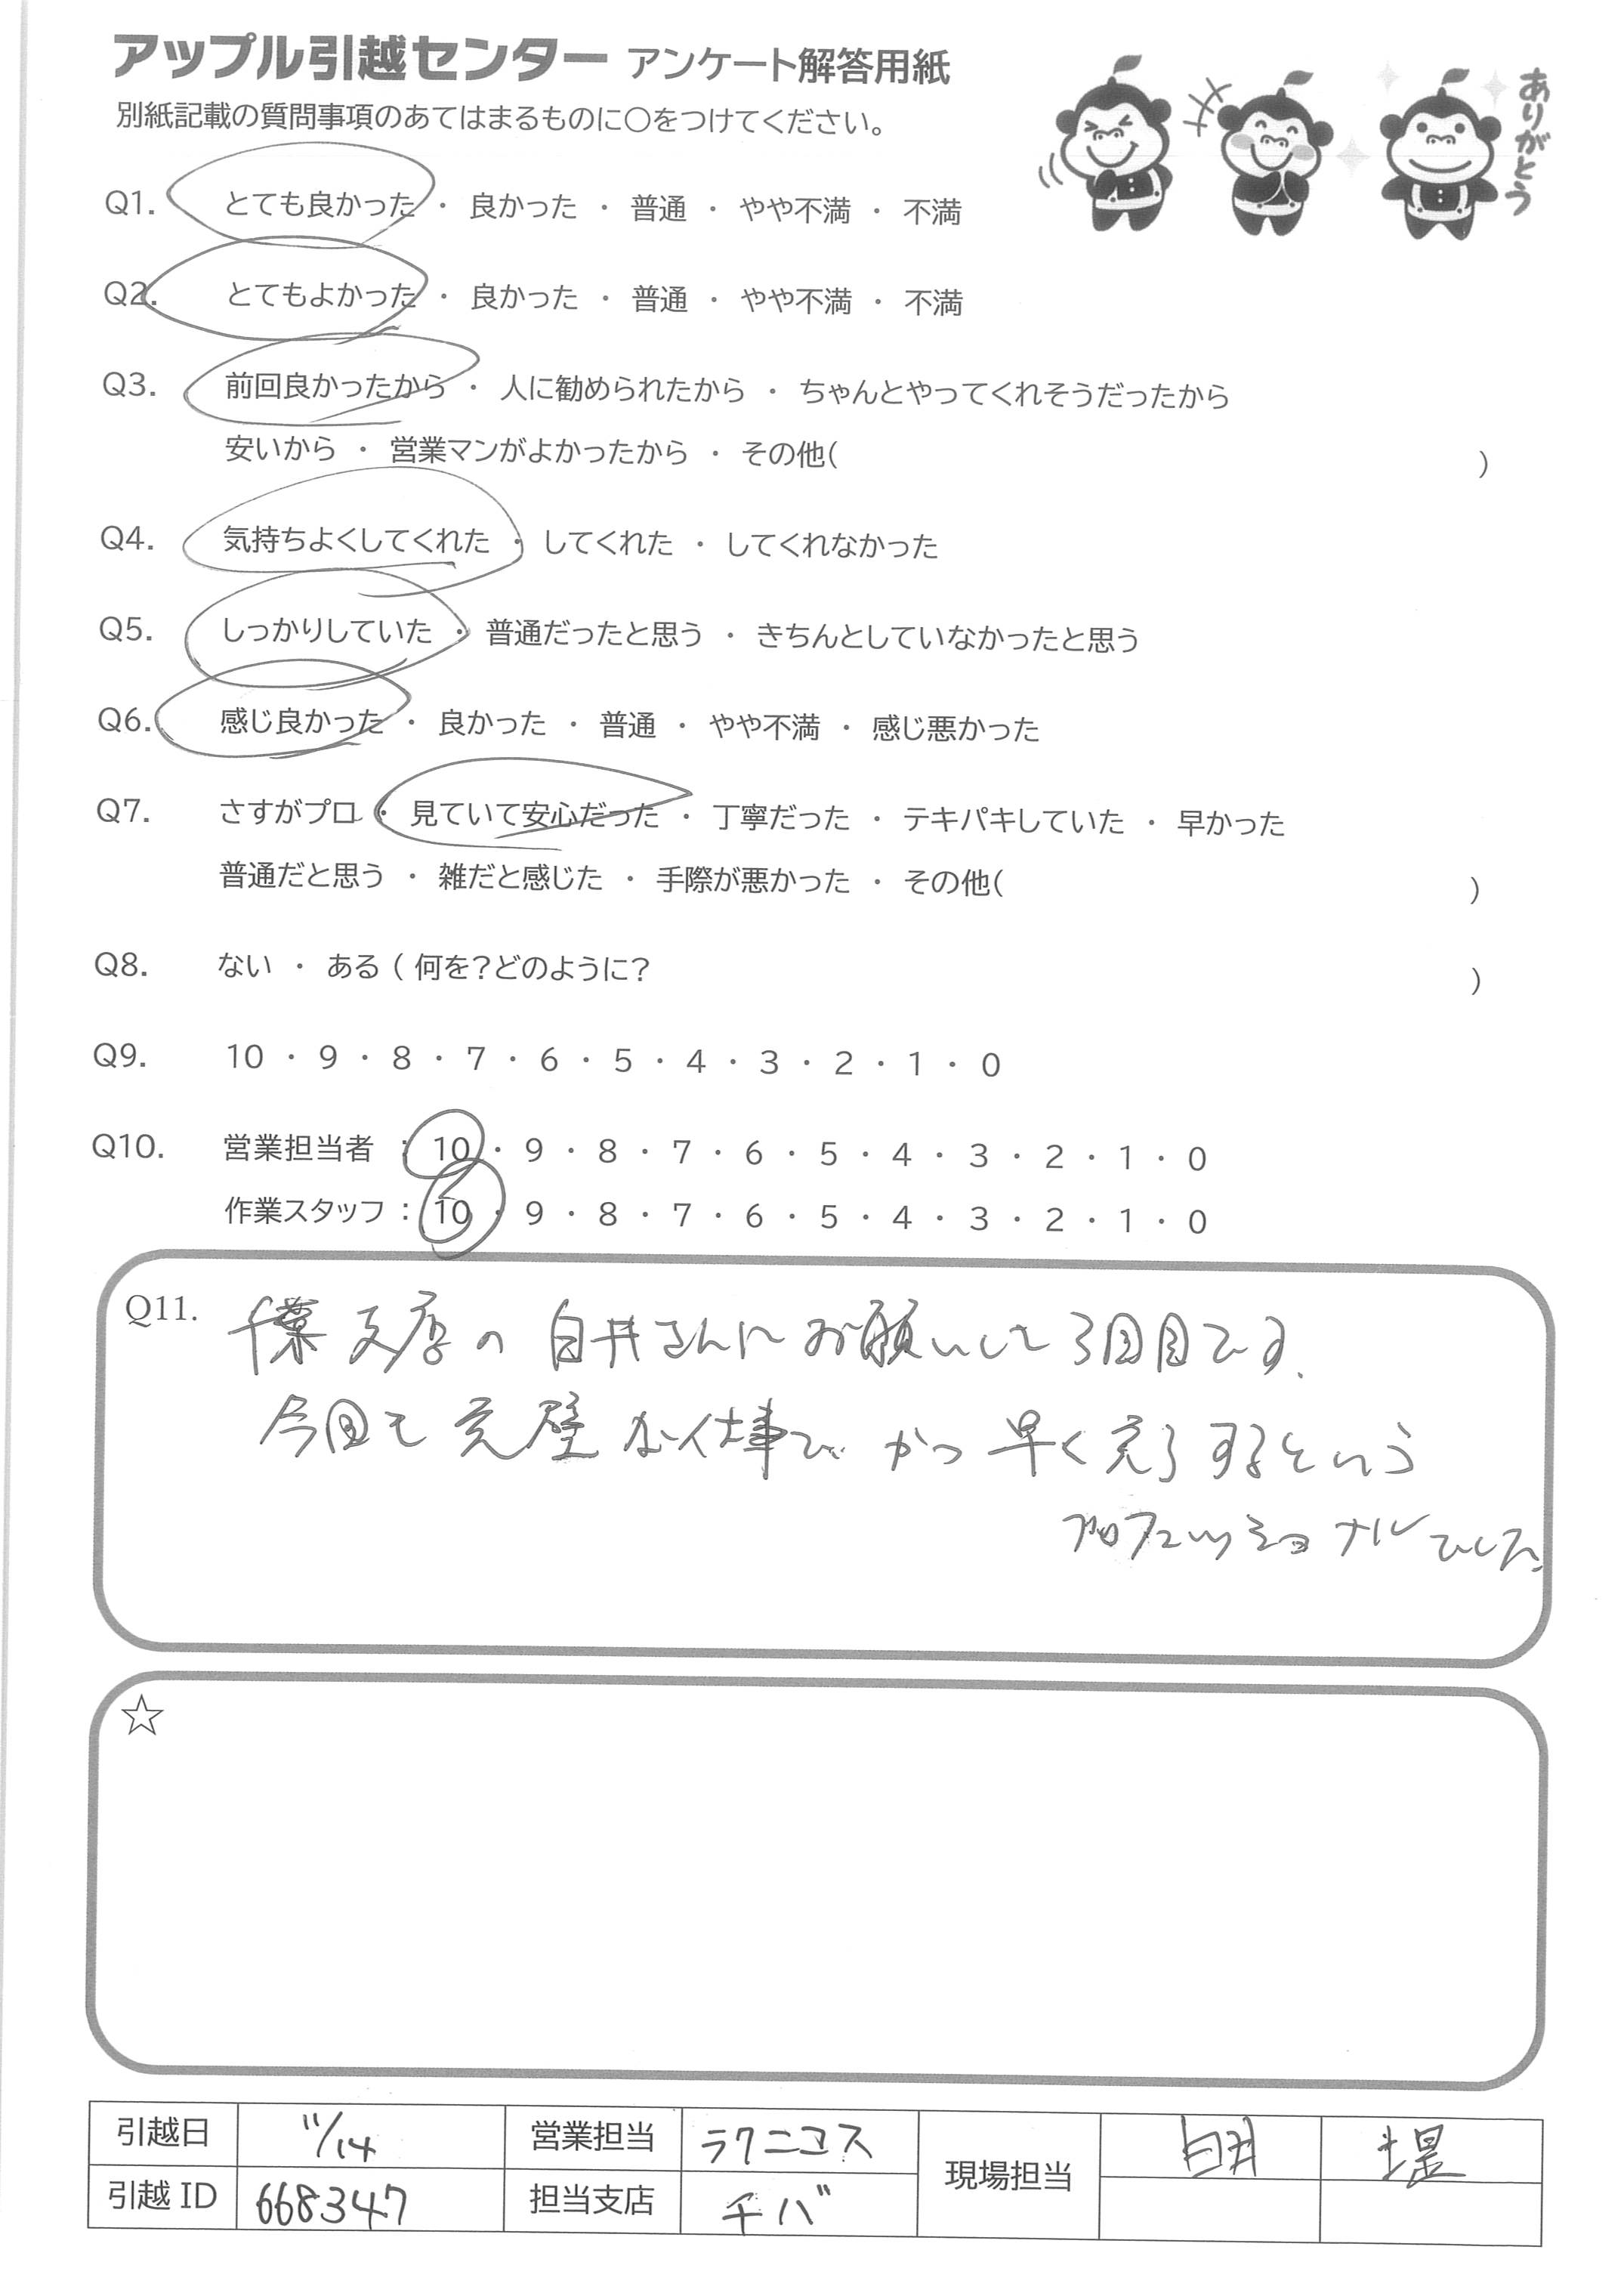 アップル引越センター アンケート解答用紙
別紙記載の質問事項のあてはまるものに○をつけてください。
ありがとう
Q1. とても良かった ・ 良かった ・ 普通 ・ やや不満 ・ 不満
Q2. とてもよかった ・ 良かった ・ 普通 ・ やや不満 ・ 不満
Q3. 前回良かったから ・ 人に勧められたから ・ ちゃんとやってくれそうだったから
安いから ・ 営業マンがよかったから ・ その他( )
Q4. 気持ちよくしてくれた ・ してくれた ・ してくれなかった
Q5. しっかりしていた ・ 普通だったと思う ・ きちんとしていなかったと思う
Q6. 感じ良かった ・ 良かった ・ 普通 ・ やや不満 ・ 感じ悪かった
Q7. さすがプロ ・ 見ていて安心だった ・ 丁寧だった ・ テキパキしていた ・ 早かった
普通だと思う ・ 雑だと感じた ・ 手際が悪かった ・ その他( )
Q8. ない ・ ある ( 何を?どのように? )
Q9. 10 ・ 9 ・ 8 ・ 7 ・ 6 ・ 5 ・ 4 ・ 3 ・ 2 ・ 1 ・ 0
Q10. 営業担当者 : 10 ・ 9 ・ 8 ・ 7 ・ 6 ・ 5 ・ 4 ・ 3 ・ 2 ・ 1 ・ 0
作業スタッフ : 10 ・ 9 ・ 8 ・ 7 ・ 6 ・ 5 ・ 4 ・ 3 ・ 2 ・ 1 ・ 0
Q11. 千葉支店の白井さんにお願いして3回目です.
今回も完璧な仕事で かつ 早く完了するという
プロフェッショナルでした.
☆
引越日 11/14 営業担当 ラクニコス 現場担当 白井 堤
引越 ID 668347 担当支店 チバ